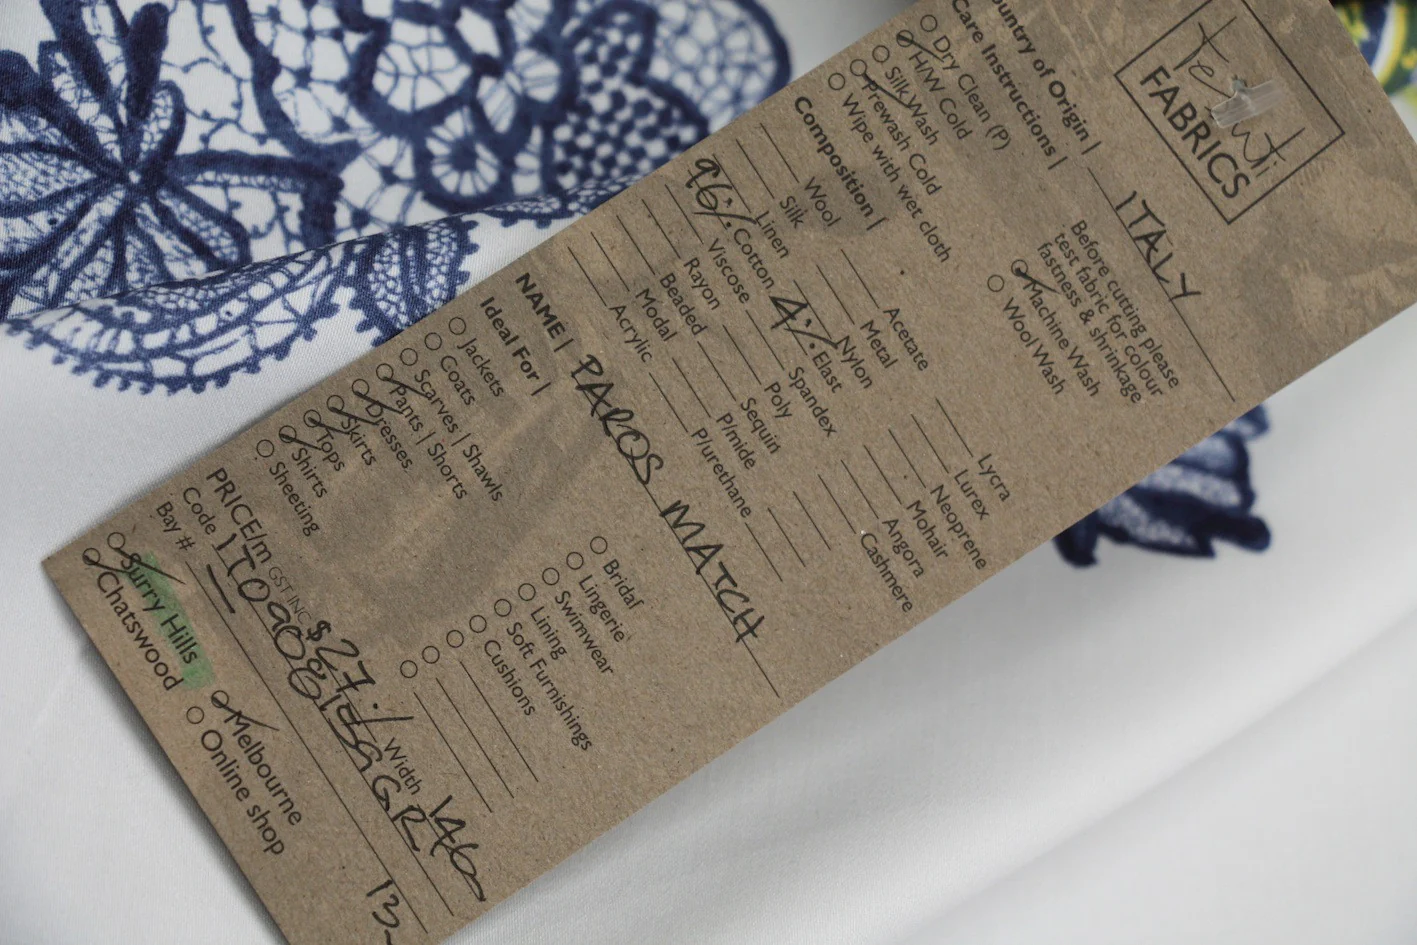 FABRICS
Country of Origin | ITALY
Care Instructions |
Dry Clean (P)
H/W Cold
Silk Wash
Prewash Cold
Wipe with wet cloth
Before cutting please
test fabric for colour
fastness & shrinkage
Machine Wash
Wool Wash
Composition |
Wool
Silk
Linen
96% Cotton
Viscose
Rayon
Beaded
Modal
Acrylic
Acetate
Metal
Nylon
4% Elast
Spandex
Poly
Sequin
P/mide
P/urethane
Lycra
Lurex
Neoprene
Mohair
Angora
Cashmere
NAME | PAROS MATCH
Ideal For |
Jackets
Coats
Scarves | Shawls
Pants | Shorts
Dresses
Skirts
Tops
Shirts
Sheeting
Bridal
Lingerie
Swimwear
Lining
Soft Furnishings
Cushions
PRICE/m GST INC $27 Width 146
Code
Bay #
13
Surry Hills
Chatswood
Melbourne
Online shop